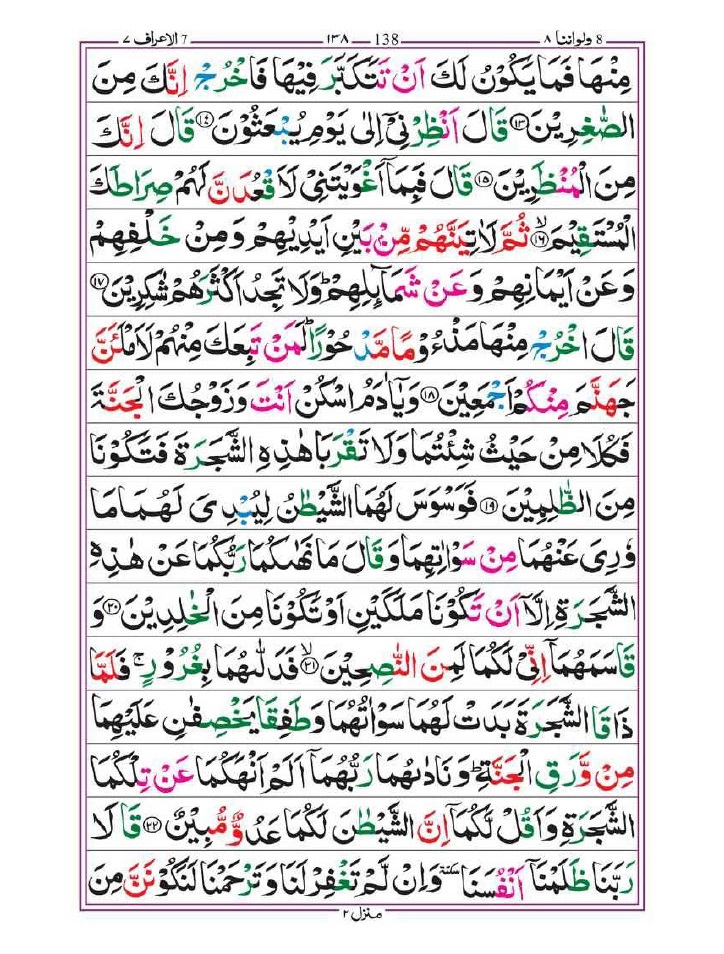 8 ولواننا ٨ 138 ١٣٨ 7 الاعراف ٧
مِنْهَا فَمَا يَكُوْنُ لَكَ اَنْ تَتَكَبَّرَ فِيْهَا فَاخْرُجْ اِنَّكَ مِنَ
الصّٰغِرِيْنَ ﴿۱۳﴾ قَالَ اَنْظِرْنِيْٓ اِلٰى يَوْمِ يُبْعَثُوْنَ ﴿۱۴﴾ قَالَ اِنَّكَ
مِنَ الْمُنْظَرِيْنَ ﴿۱۵﴾ قَالَ فَبِمَآ اَغْوَيْتَنِيْ لَاَقْعُدَنَّ لَهُمْ صِرَاطَكَ
الْمُسْتَقِيْمَ ﴿۱۶﴾ۙ ثُمَّ لَاٰتِيَنَّهُمْ مِّنْۢ بَيْنِ اَيْدِيْهِمْ وَمِنْ خَلْفِهِمْ
وَعَنْ اَيْمَانِهِمْ وَعَنْ شَمَآئِلِهِمْ ؕ وَلَا تَجِدُ اَكْثَرَهُمْ شٰكِرِيْنَ ﴿۱۷﴾
قَالَ اخْرُجْ مِنْهَا مَذْءُوْمًا مَّدْحُوْرًا ؕ لَمَنْ تَبِعَكَ مِنْهُمْ لَاَمْلَئَنَّ
جَهَنَّمَ مِنْكُمْ اَجْمَعِيْنَ ﴿۱۸﴾ وَيٰٓاٰدَمُ اسْكُنْ اَنْتَ وَزَوْجُكَ الْجَنَّةَ
فَكُلَا مِنْ حَيْثُ شِئْتُمَا وَلَا تَقْرَبَا هٰذِهِ الشَّجَرَةَ فَتَكُوْنَا
مِنَ الظّٰلِمِيْنَ ﴿۱۹﴾ فَوَسْوَسَ لَهُمَا الشَّيْطٰنُ لِيُبْدِيَ لَهُمَا مَا
وٗرِيَ عَنْهُمَا مِنْ سَوْاٰتِهِمَا وَقَالَ مَا نَهٰىكُمَا رَبُّكُمَا عَنْ هٰذِهِ
الشَّجَرَةِ اِلَّآ اَنْ تَكُوْنَا مَلَكَيْنِ اَوْ تَكُوْنَا مِنَ الْخٰلِدِيْنَ ﴿۲۰﴾ وَ
قَاسَمَهُمَآ اِنِّيْ لَكُمَا لَمِنَ النّٰصِحِيْنَ ﴿۲۱﴾ۙ فَدَلّٰىهُمَا بِغُرُوْرٍ ۚ فَلَمَّا
ذَاقَا الشَّجَرَةَ بَدَتْ لَهُمَا سَوْاٰتُهُمَا وَطَفِقَا يَخْصِفٰنِ عَلَيْهِمَا
مِنْ وَّرَقِ الْجَنَّةِ ؕ وَنَادٰىهُمَا رَبُّهُمَآ اَلَمْ اَنْهَكُمَا عَنْ تِلْكُمَا
الشَّجَرَةِ وَاَقُلْ لَّكُمَآ اِنَّ الشَّيْطٰنَ لَكُمَا عَدُوٌّ مُّبِيْنٌ ﴿۲۲﴾ قَالَا
رَبَّنَا ظَلَمْنَآ اَنْفُسَنَا سكتة وَاِنْ لَّمْ تَغْفِرْ لَنَا وَتَرْحَمْنَا لَنَكُوْنَنَّ مِنَ
منزل ٢